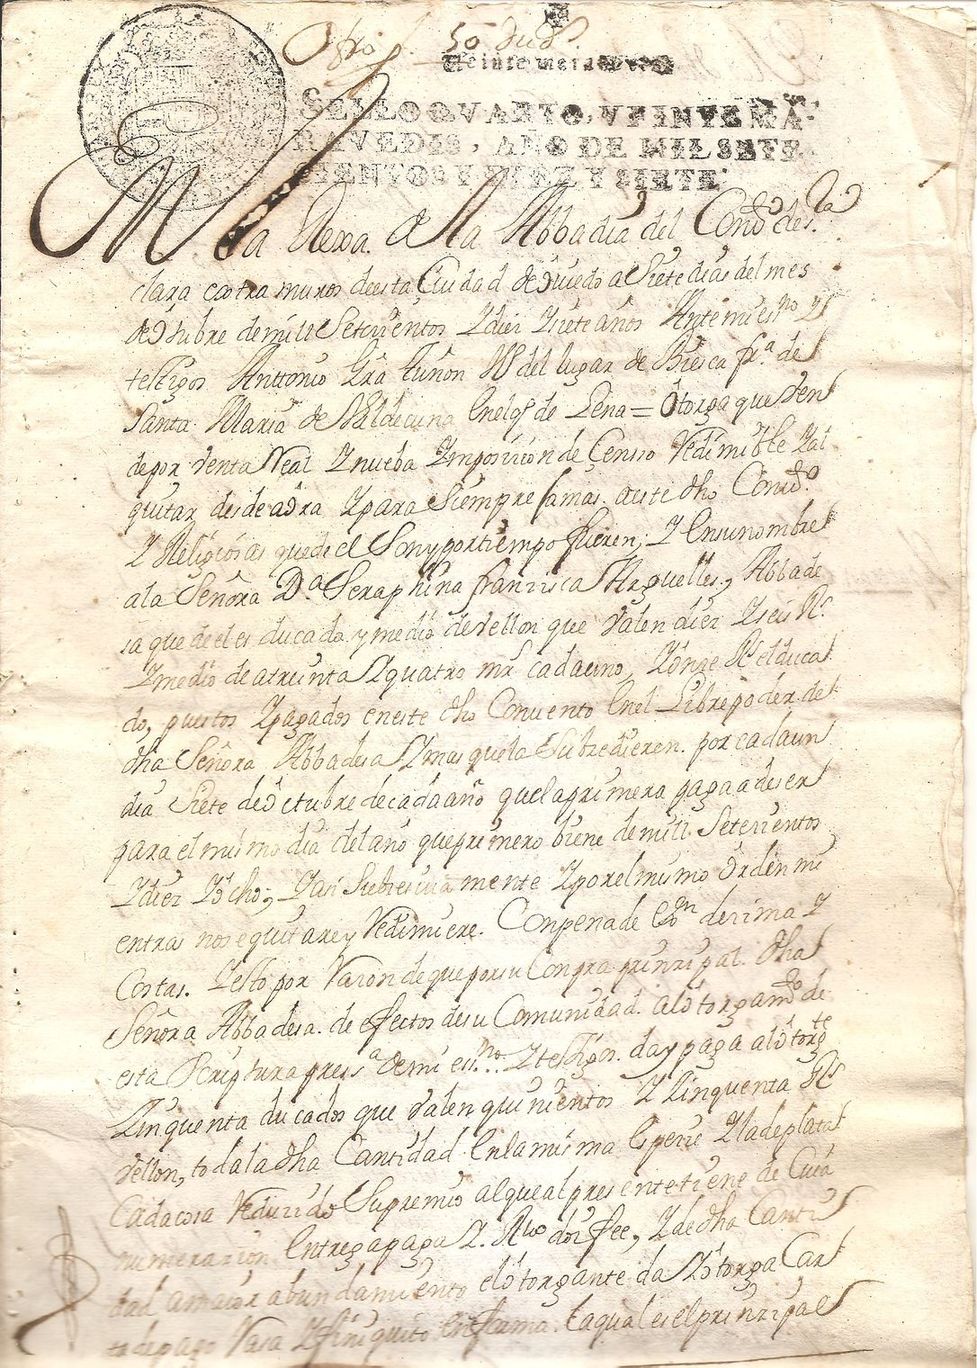 50 duds.
Veinte maravedis
SELLO QVARTO, VEINTE MA-
RAVEDIS, AÑO DE MIL SETE
CIENTOS Y DIEZ Y SIETE.
En la Rexa de la Abbadia del Conbto de sta
clara extra muros de esta Çiudad de Oviedo a Siete dias del mes
de Otubre de mill Setecientos Y diez Y siete años Ante mi essno Y
testigos Anttonio Gra tuñon Vº del lugar de frª de
Santa Maria de Lena = Otorga que Ven
de por Venta Real Y nueba Ymposicion de Çensso Redimible Y al
quitar desde aora Y para Siempre Jamas. a este dho Convto
Y Religiosas que de el Son y por tiempo fueren, Y En su nombre
a la Señora Dª Seraphina francisca Arguelles, Abbade
sa que de el es ducado y medio de vellon que Valen diez Y seis Rs
Y medio de a treinta Y quatro mrs cada uno, Y onze Rs el duca
do, puestos Y pagados en este dho Convento En el Libre poder de
dha Señora Abbadesa Y mas que la Subzedieren. por cada un
dia Siete de Octubre de cada año que la primera paga a de ser
para el mismo dia del año que primero biene de mill Setecientos
Y diez Y ocho, Y asi Subzesiva mente Y por el mismo Orden mi
entras no se quitare y Redimiere. Con pena de Eon dezima Y
Costas. Y esto por Raçon de que por su Conpra prinzipal. dha
Señora Abbadesa. de efectos de su Comunidad. al otorgamto de
esta Scriptura presª de mi essno Y testigos. da y paga al otorgte
Zinquenta ducados que Valen quinientos Y Zinquenta Rs
Vellon, toda la dha Cantidad En la misma Espezie Y la de plata
Cada cosa Reduzido Supremio al que al presente tiene de Cuia
numerazion Entrega paga Y Rvo doi fee, Y de dha Canti
dad a maior abundamiento el otorgante da Y otorga Car
ta de pago Rasa Y finiquito En forma. la qual es el prinzipal